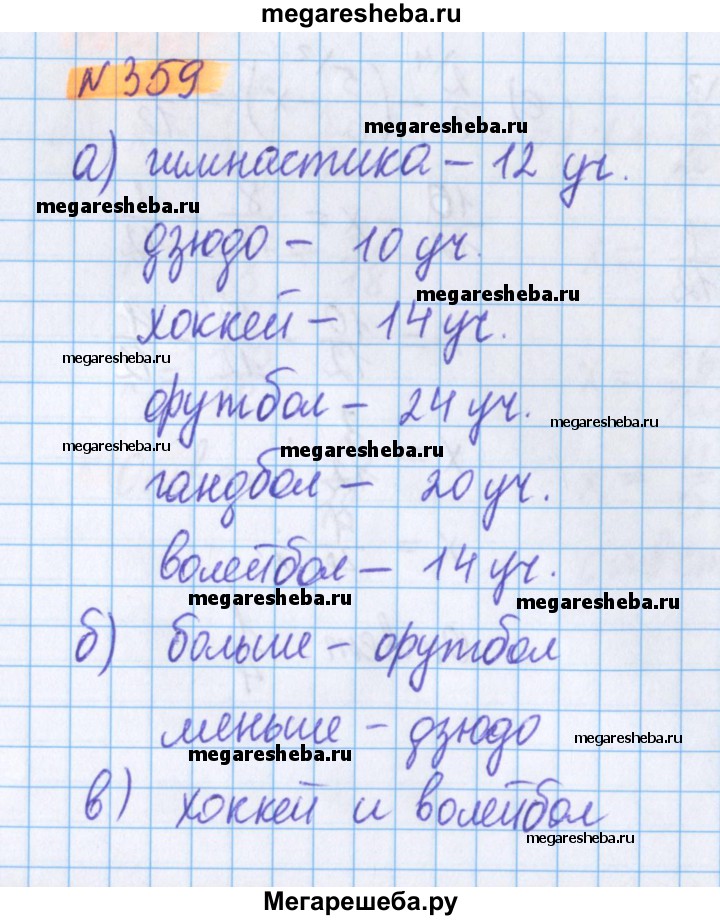 megaresheba.ru
N 359
megaresheba.ru
а) гимнастика – 12 уч.
megaresheba.ru
дзюдо – 10 уч.
megaresheba.ru
хоккей – 14 уч.
megaresheba.ru
футбол – 24 уч.
megaresheba.ru
megaresheba.ru
megaresheba.ru
гандбол – 20 уч.
волейбол – 14 уч.
megaresheba.ru
megaresheba.ru
б) больше – футбол
меньше – дзюдо
megaresheba.ru
megaresheba.ru
в) хоккей и волейбол
megaresheba.ru
Мегарешеба.ру